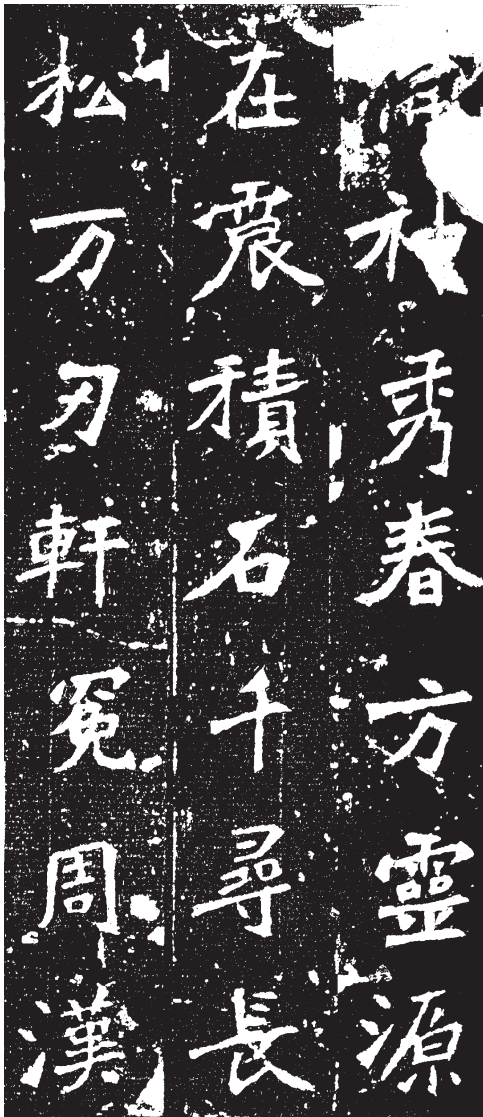 神秀春方靈源
在震積石千尋長
松万刃軒冕周漢